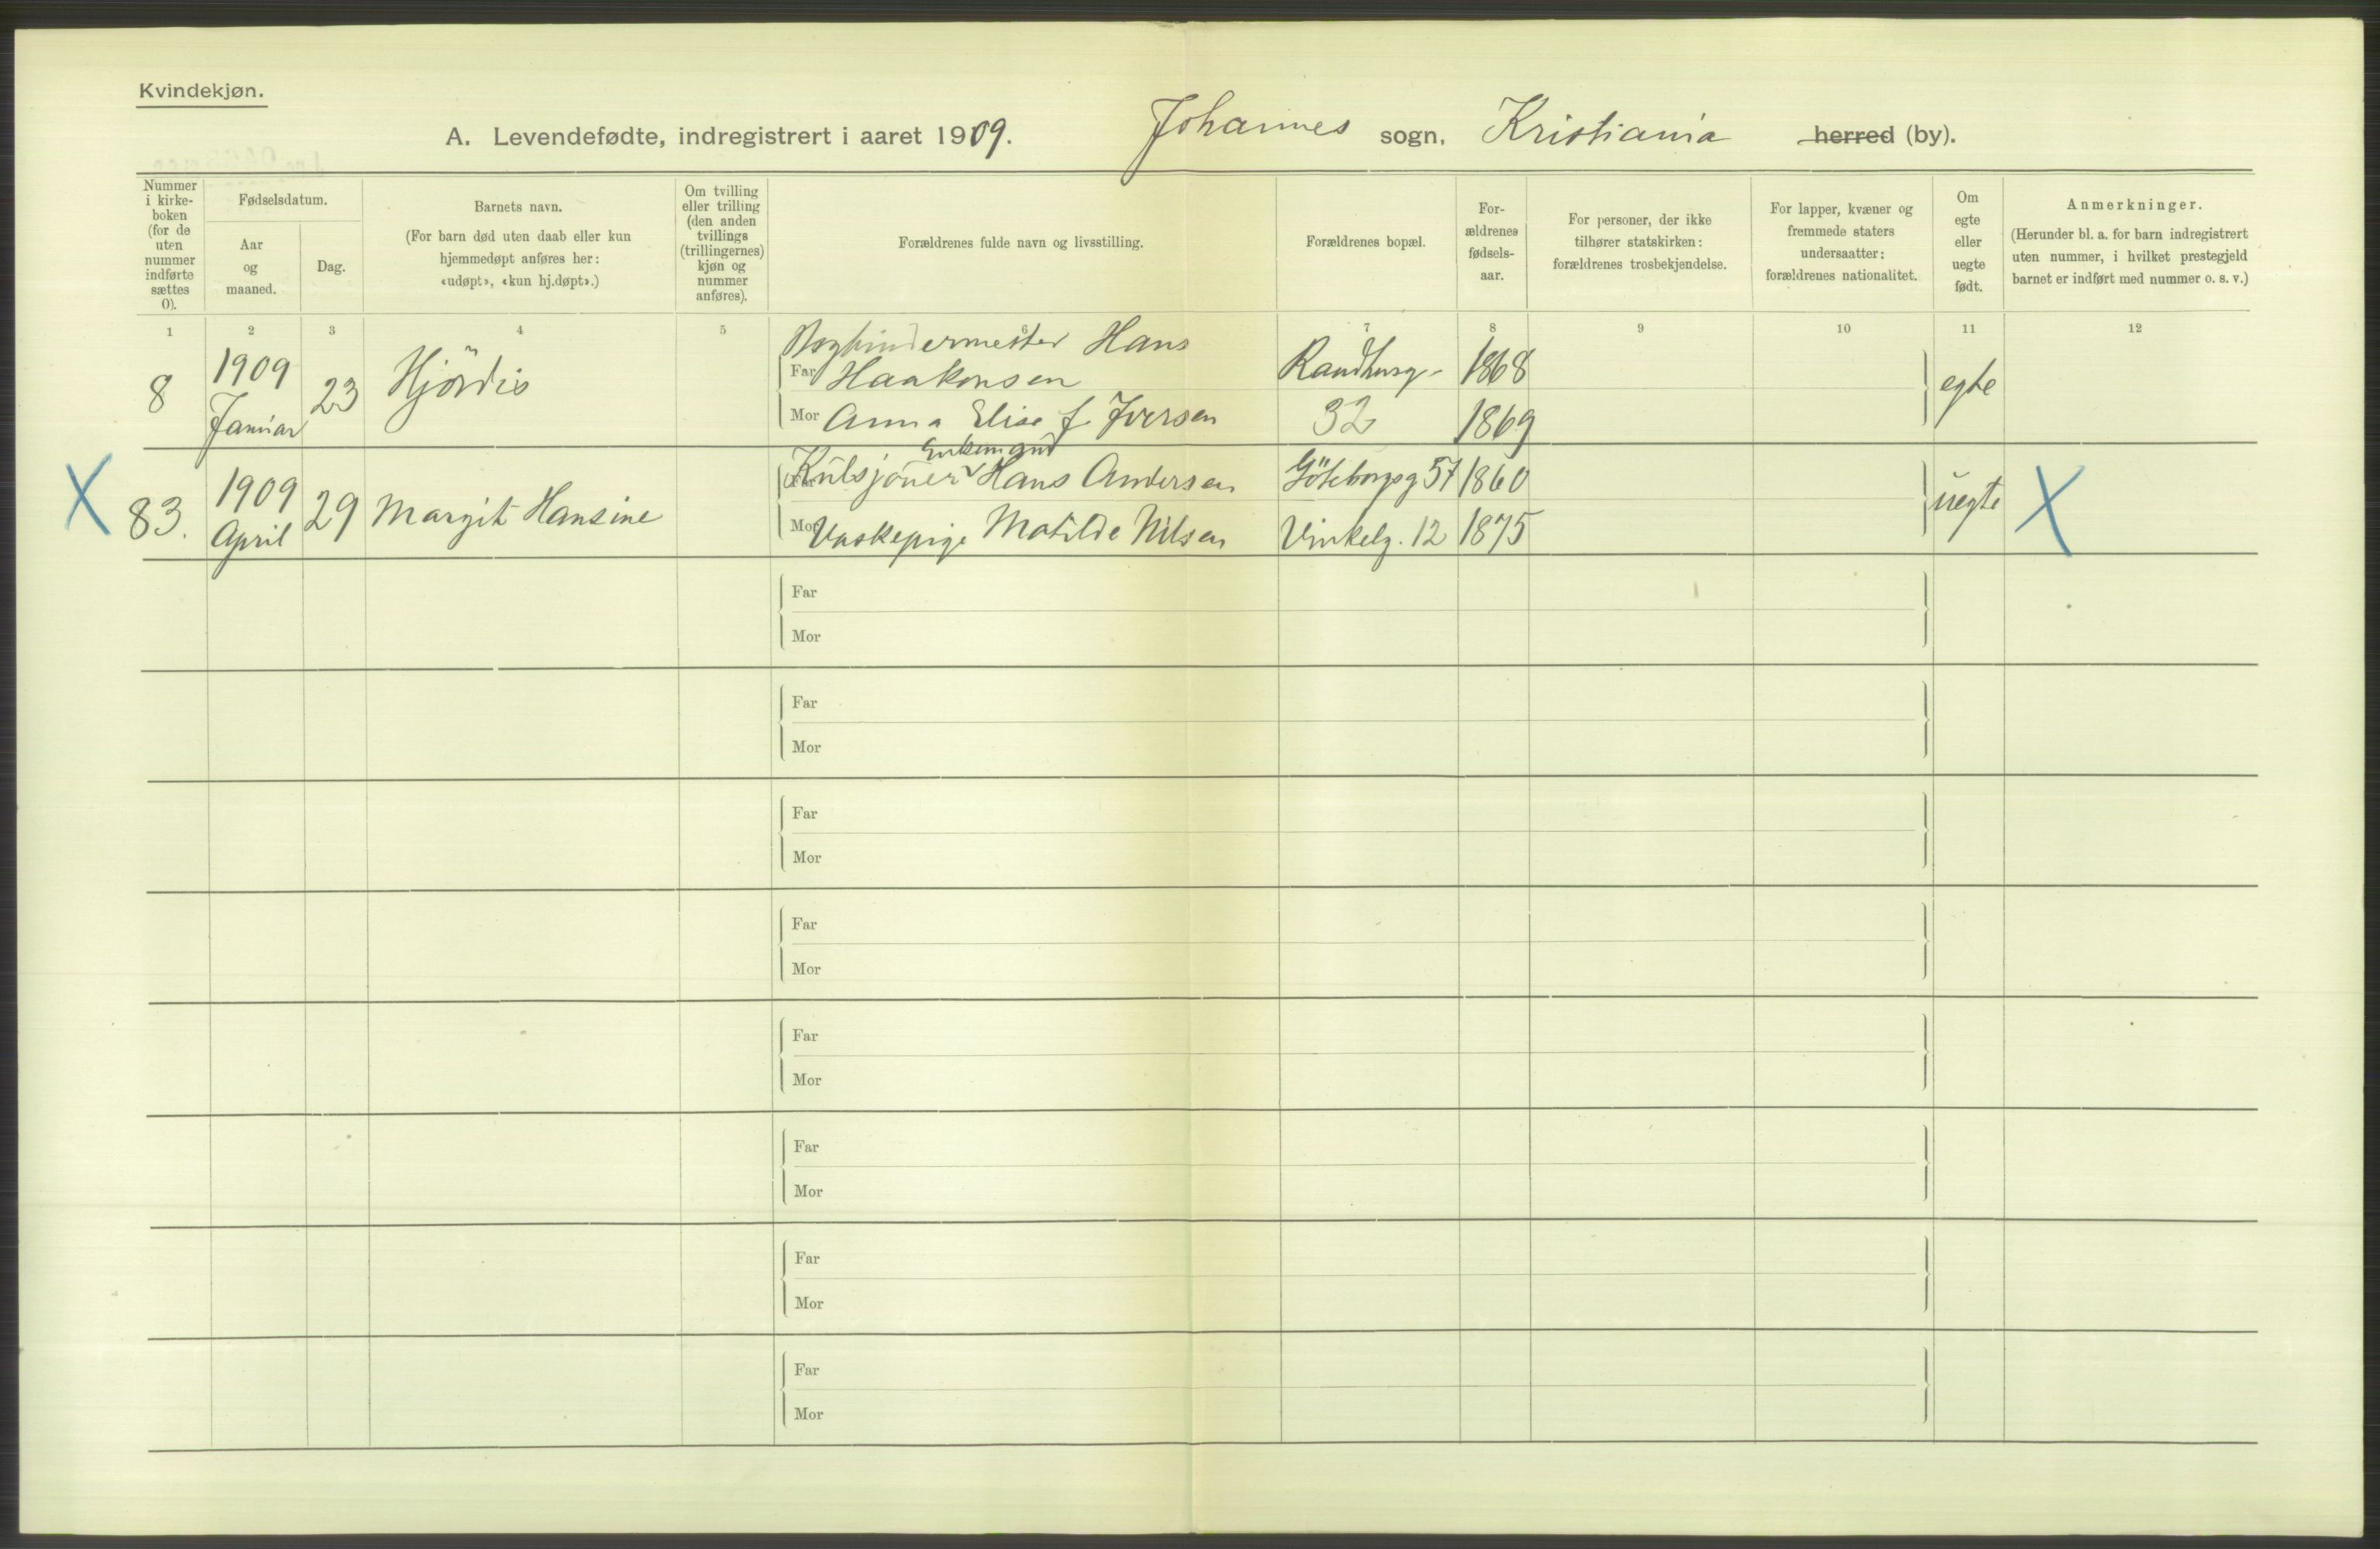 Kvindekjøn.
A. Levendefødte, indregistrert i aaret 1909. Johannes sogn, Kristiania herred (by).
Nummer i kirke-boken (for de uten nummer indførte sættes 0).
Fødselsdatum.
Aar og maaned.
Dag.
Barnets navn.
(For barn død uten daab eller kun
hjemmedøpt anføres her:
«udøpt», «kun hj.døpt».)
Om tvilling
eller trilling
(den anden
tvillings
(trillingernes)
kjøn og
nummer
anføres).
Forældrenes fulde navn og livsstilling.
Forældrenes bopæl.
For-
ældrenes
fødsels-
aar.
For personer, der ikke
tilhører statskirken:
forældrenes trosbekjendelse.
For lapper, kvæner og
fremmede staters
undersaatter:
forældrenes nationalitet.
Om
egte
eller
uegte
født.
Anmerkninger.
(Herunder bl. a. for barn indregistrert
uten nummer, i hvilket prestegjeld
barnet er indført med nummer o. s. v.)
1 2 3 4 5 6 7 8 9 10 11 12
8 1909 Januar 23 Hjördis
Bogbindermester Hans
Far Haakonsen Randhusg- 1868
Mor Anna Elise f. Iversen 32 1869
egte
X 83. 1909 April 29 Margit Hansine
Enkemand
Far Kulsjouer Hans Andersen Göteborgsg 57 1860
Mor Vaskepige Matilde Nilsen Vinkelg. 12 1875
uegte X
Far
Mor
Far
Mor
Far
Mor
Far
Mor
Far
Mor
Far
Mor
Far
Mor
Far
Mor